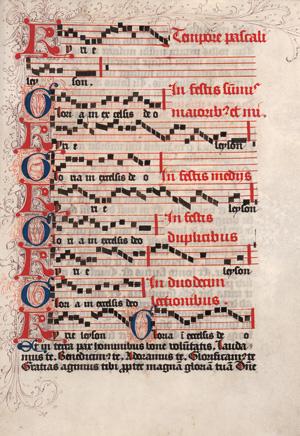 Kyrie Tempore pascali
leyson.
Gloria in excelsis deo In festis sūmis
maioribꝫ et mi.
Kyrie leyson
Gloria in excelsis deo In festis medijs
Kyrie leyson
Gloria in excelsis deo In festis
duplicibus
Kyrie leyson
Gloria in excelsis deo In duodecim
lectionibus
Kyrie leyson Gloria i excelsis deo
Et ī terra pax hominibus bone volūtatis. Lauda
mus te. Benedicimꝰ te. Adoramus te. Glorificamꝰ te
Gratias agimus tibi, ꝓpter magnā gloriā tuā Dñe